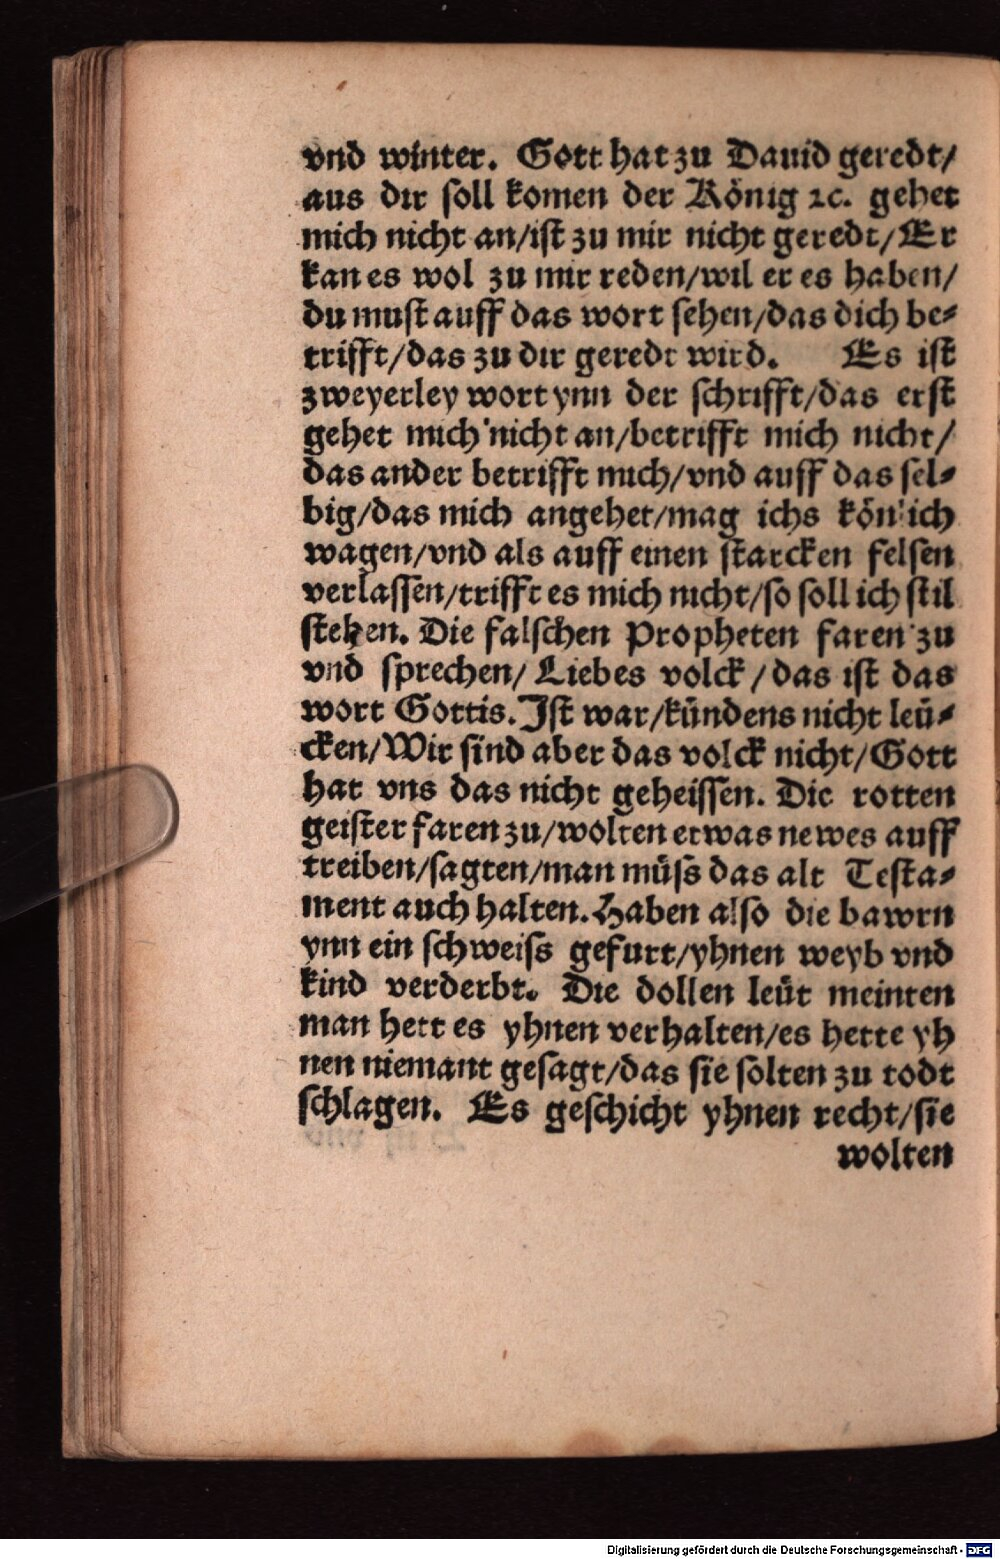 vnd winter. Gott hat zu Dauid geredt/
aus dir soll komen der König ꝛc. gehet
mich nicht an/ist zu mir nicht geredt/Er
kan es wol zu mir reden/wil er es haben/
du must auff das wort sehen/das dich be⸗
trifft/das zu dir geredt wird. Es ist
zweyerley wort ynn der schrifft/das erst
gehet mich nicht an/betrifft mich nicht/
das ander betrifft mich/vnd auff das sel⸗
big/das mich angehet/mag ichs könlich
wagen/vnd als auff einen starcken felsen
verlassen/trifft es mich nicht/so soll ich stil
stehen. Die falschen Propheten faren zu
vnd sprechen/ Liebes volck/das ist das
wort Gottis. Ist war/kündens nicht leü⸗
cken/Wir sind aber das volck nicht/Gott
hat vns das nicht geheissen. Die rotten
geister faren zu/wolten etwas newes auff
treiben/sagten/man müss das alt Testa⸗
ment auch halten. Haben also die bawrn
ynn ein schweiss gefurt/yhnen weyb vnd
kind verderbt. Die dollen leüt meinten
man hett es yhnen verhalten/es hette yh
nen niemant gesagt/das sie solten zu todt
schlagen. Es geschicht yhnen recht/sie
wolten
Digitalisierung gefördert durch die Deutsche Forschungsgemeinschaft - DFG